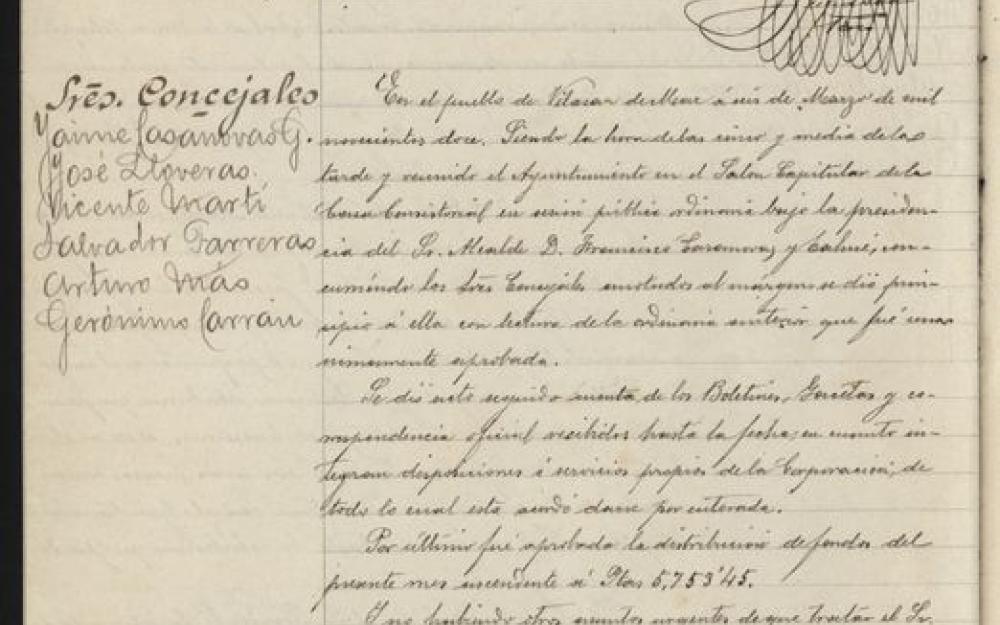 Srēs. Concejales
Jaime Casanovas G.
José Lloveras.
Vicente Martí
Salvador Farreras
Arturo Más
Gerónimo Carrau
En el pueblo de Vilasar de Mar á seis de Marzo de mil
novecientos doce. Siendo la hora de las cinco y media de la
tarde y reunido el Ayuntamiento en el Salon Capitular de la
Casa Consistorial en sesión pública ordinaria bajo la presiden-
cia del Sr. Alcalde D. Francisco Casanovas y con-
curriendo los Sres Concejales anotados al márgen se dió prin-
cipio á ella con lectura de la ordinaria anterior que fué una
nimamente aprobada.
Se dió acto seguido cuenta de los Boletines, Gacetas y co-
rrespondencia oficial recibidos hasta la fecha, en cuanto in-
tegran disposiciones ó servicios propios de la Corporación; de
todo lo cual esta acordó darse por enterada.
Por último fué aprobada la distribucion de fondos del
presente mes ascendente á Ptas 5,753'45.
Y no habiendo otros asuntos urgentes de que tratar el Sr.